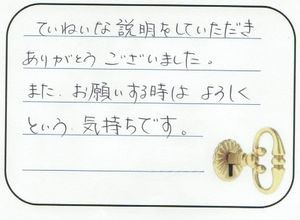 ていねいな説明をしていただき
ありがとうございました。
また、お願いする時は よろしく
という、気持ちです。